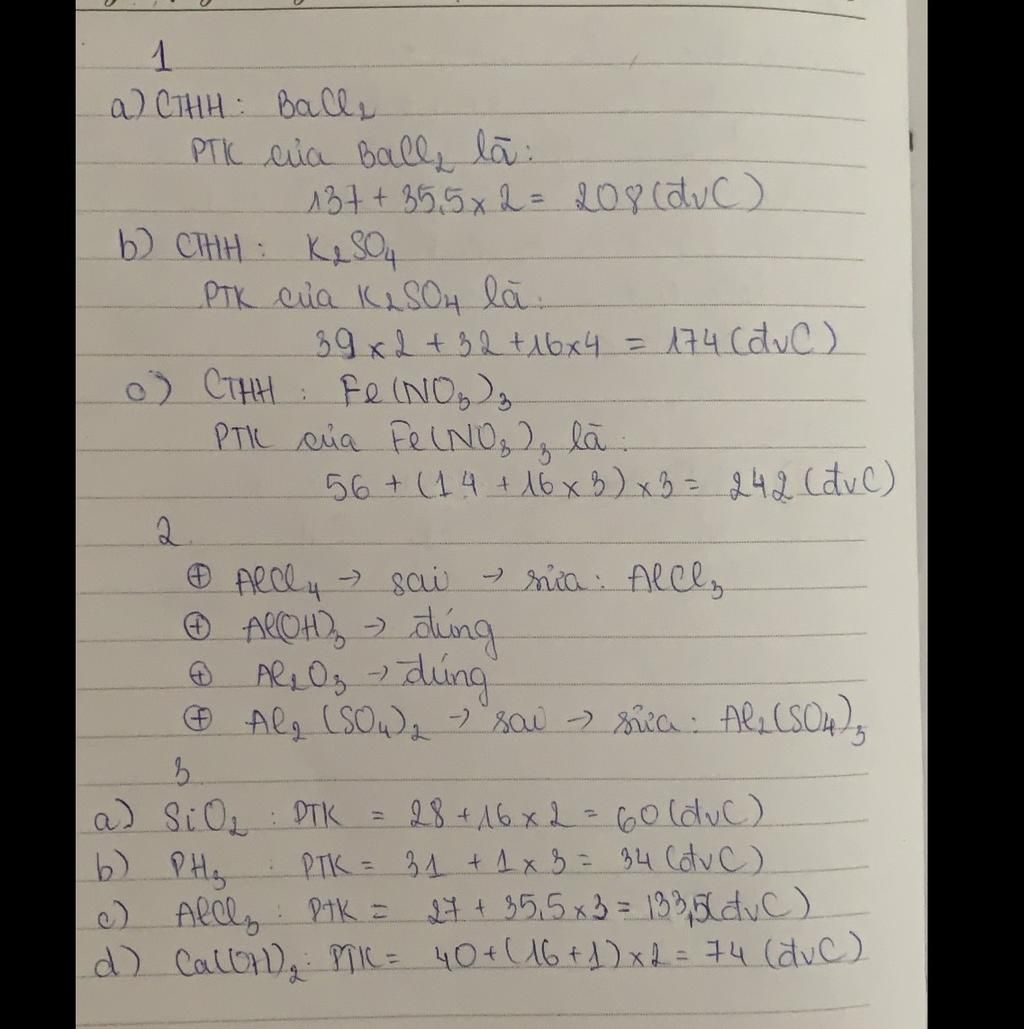 1
a) CTHH : BaCl₂
PTK của BaCl₂ là :
137 + 35,5 x 2 = 208 (đvC)
b) CTHH : K₂SO₄
PTK của K₂SO₄ là :
39 x 2 + 32 + 16 x 4 = 174 (đvC)
c) CTHH : Fe(NO₃)₃
PTK của Fe(NO₃)₃ là :
56 + (14 + 16 x 3) x 3 = 242 (đvC)
2
⊕ AlCl₄ → sai → sửa : AlCl₃
⊕ Al(OH)₃ → đúng
⊕ Al₂O₃ → đúng
⊕ Al₂(SO₄)₂ → sai → sửa : Al₂(SO₄)₃
3
a) SiO₂ : PTK = 28 + 16 x 2 = 60 (đvC)
b) PH₃ : PTK = 31 + 1 x 3 = 34 (đvC)
c) AlCl₃ : PTK = 27 + 35,5 x 3 = 133,5 (đvC)
d) Ca(OH)₂ : PTK = 40 + (16 + 1) x 2 = 74 (đvC)